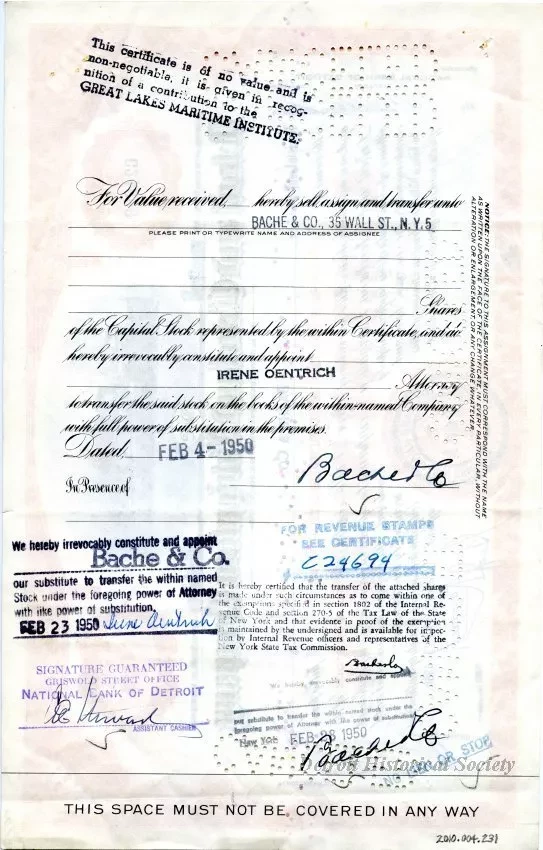 This certificate is of no value and is
non-negotiable, it is given in recog-
nition of a contribution to the
GREAT LAKES MARITIME INSTITUTE.
For Value received, hereby sell, assign and transfer unto
BACHE & CO., 35 WALL ST., N.Y. 5
PLEASE PRINT OR TYPEWRITE NAME AND ADDRESS OF ASSIGNEE
Shares
of the Capital Stock represented by the within Certificate, and do
hereby irrevocably constitute and appoint
IRENE OENTRICH
Attorney
to transfer the said stock on the books of the within-named Company
with full power of substitution in the premises.
Dated FEB 4 - 1950
Bache & Co
In Presence of
NOTICE: THE SIGNATURE TO THIS ASSIGNMENT MUST CORRESPOND WITH THE NAME
AS WRITTEN UPON THE FACE OF THE CERTIFICATE, IN EVERY PARTICULAR, WITHOUT
ALTERATION OR ENLARGEMENT, OR ANY CHANGE WHATEVER.
FOR REVENUE STAMPS
SEE CERTIFICATE
C24694
We hereby irrevocably constitute and appoint
Bache & Co.
our substitute to transfer the within named
Stock under the foregoing power of Attorney
with like power of substitution.
FEB 23 1950 Irene Oentrich
It is hereby certified that the transfer of the attached shares
is made under such circumstances as to come within one of
the exemptions specified in section 1802 of the Internal Re-
venue Code and section 270-5 of the Tax Law of the State
of New York and that evidence in proof of the exemption
is maintained by the undersigned and is available for inspec-
tion by Internal Revenue officers and representatives of the
New York State Tax Commission.
Bache & Co
SIGNATURE GUARANTEED
GRISWOLD STREET OFFICE
NATIONAL BANK OF DETROIT
ASSISTANT CASHIER
We hereby irrevocably constitute and appoint
our substitute to transfer the within named stock under the
foregoing power of Attorney with like power of substitution
New York FEB 28 1950
Bache & Co
NO TAX OR STOP
Detroit Historical Society
THIS SPACE MUST NOT BE COVERED IN ANY WAY
2010.004.231